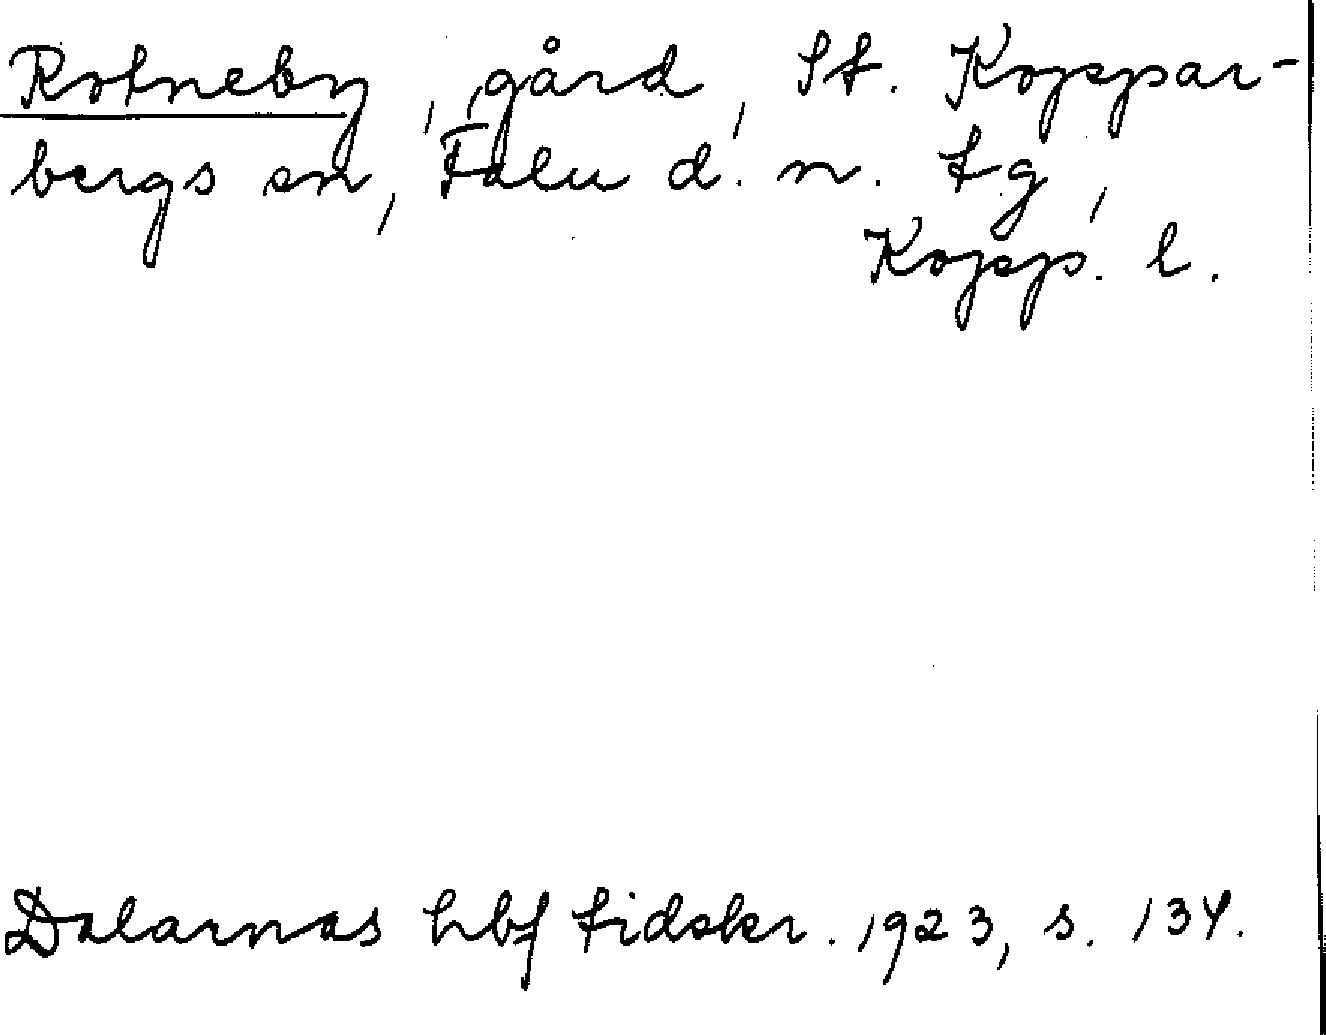 Rotneby, gård, St. Koppar-
bergs sn, Falu d. n. tg,
Kopp. l.
Dalarnas hbf tidskr. 1923, s. 134.